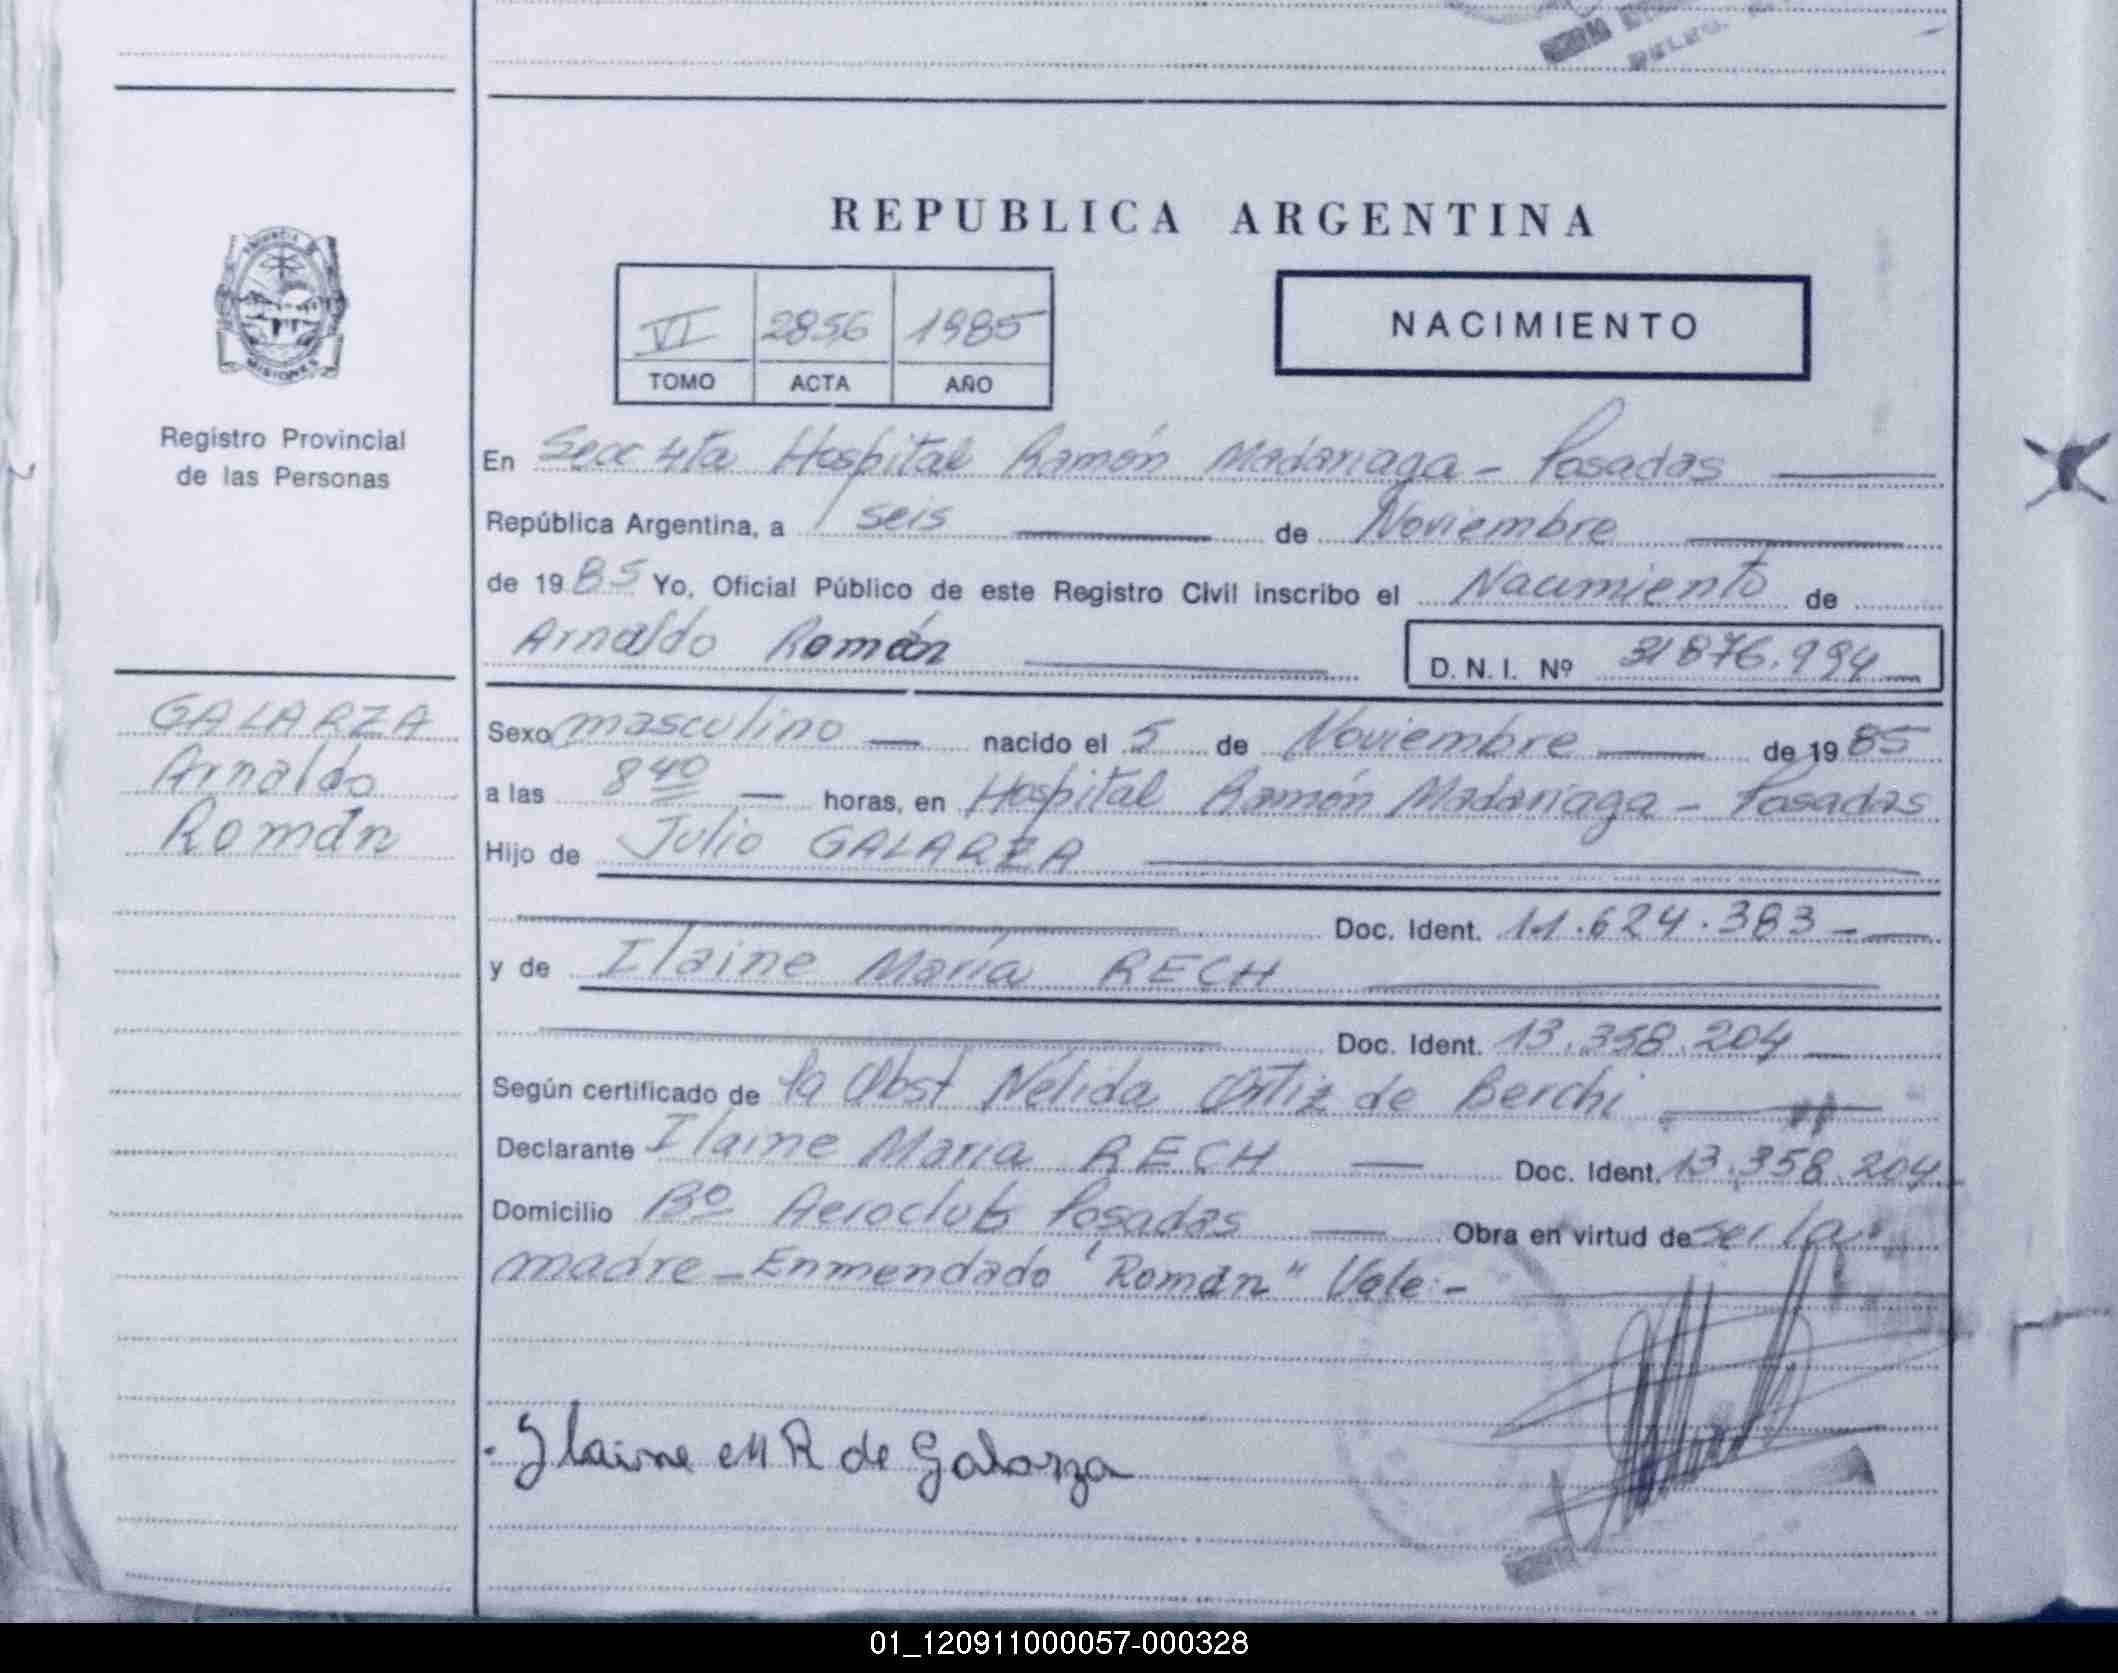 REPUBLICA ARGENTINA
VI 2856 1985
TOMO ACTA AÑO
NACIMIENTO
PROVINCIA DE
MISIONES
Registro Provincial
de las Personas
En Secc 4ta Hospital Ramón Madariaga - Posadas
República Argentina, a seis de Noviembre
de 1985 Yo, Oficial Público de este Registro Civil inscribo el Nacimiento de
Arnaldo Román D. N. I. Nº 31876.994
GALARZA
Arnaldo
Román
Sexo masculino nacido el 5 de Noviembre de 1985
a las 8 40 horas, en Hospital Ramón Madariaga - Posadas
Hijo de Julio GALARZA
Doc. Ident. 11.624.383
y de Ilaine María RECH
Doc. Ident. 13.358.204
Según certificado de la Obst Nélida Ortiz de Berchi
Declarante Ilaine María RECH Doc. Ident. 13.358.204
Domicilio Bº Aeroclub Posadas Obra en virtud de ser la
madre - Enmendado "Román" Vale -
Ilaine M R de Galarza
01_120911000057-000328